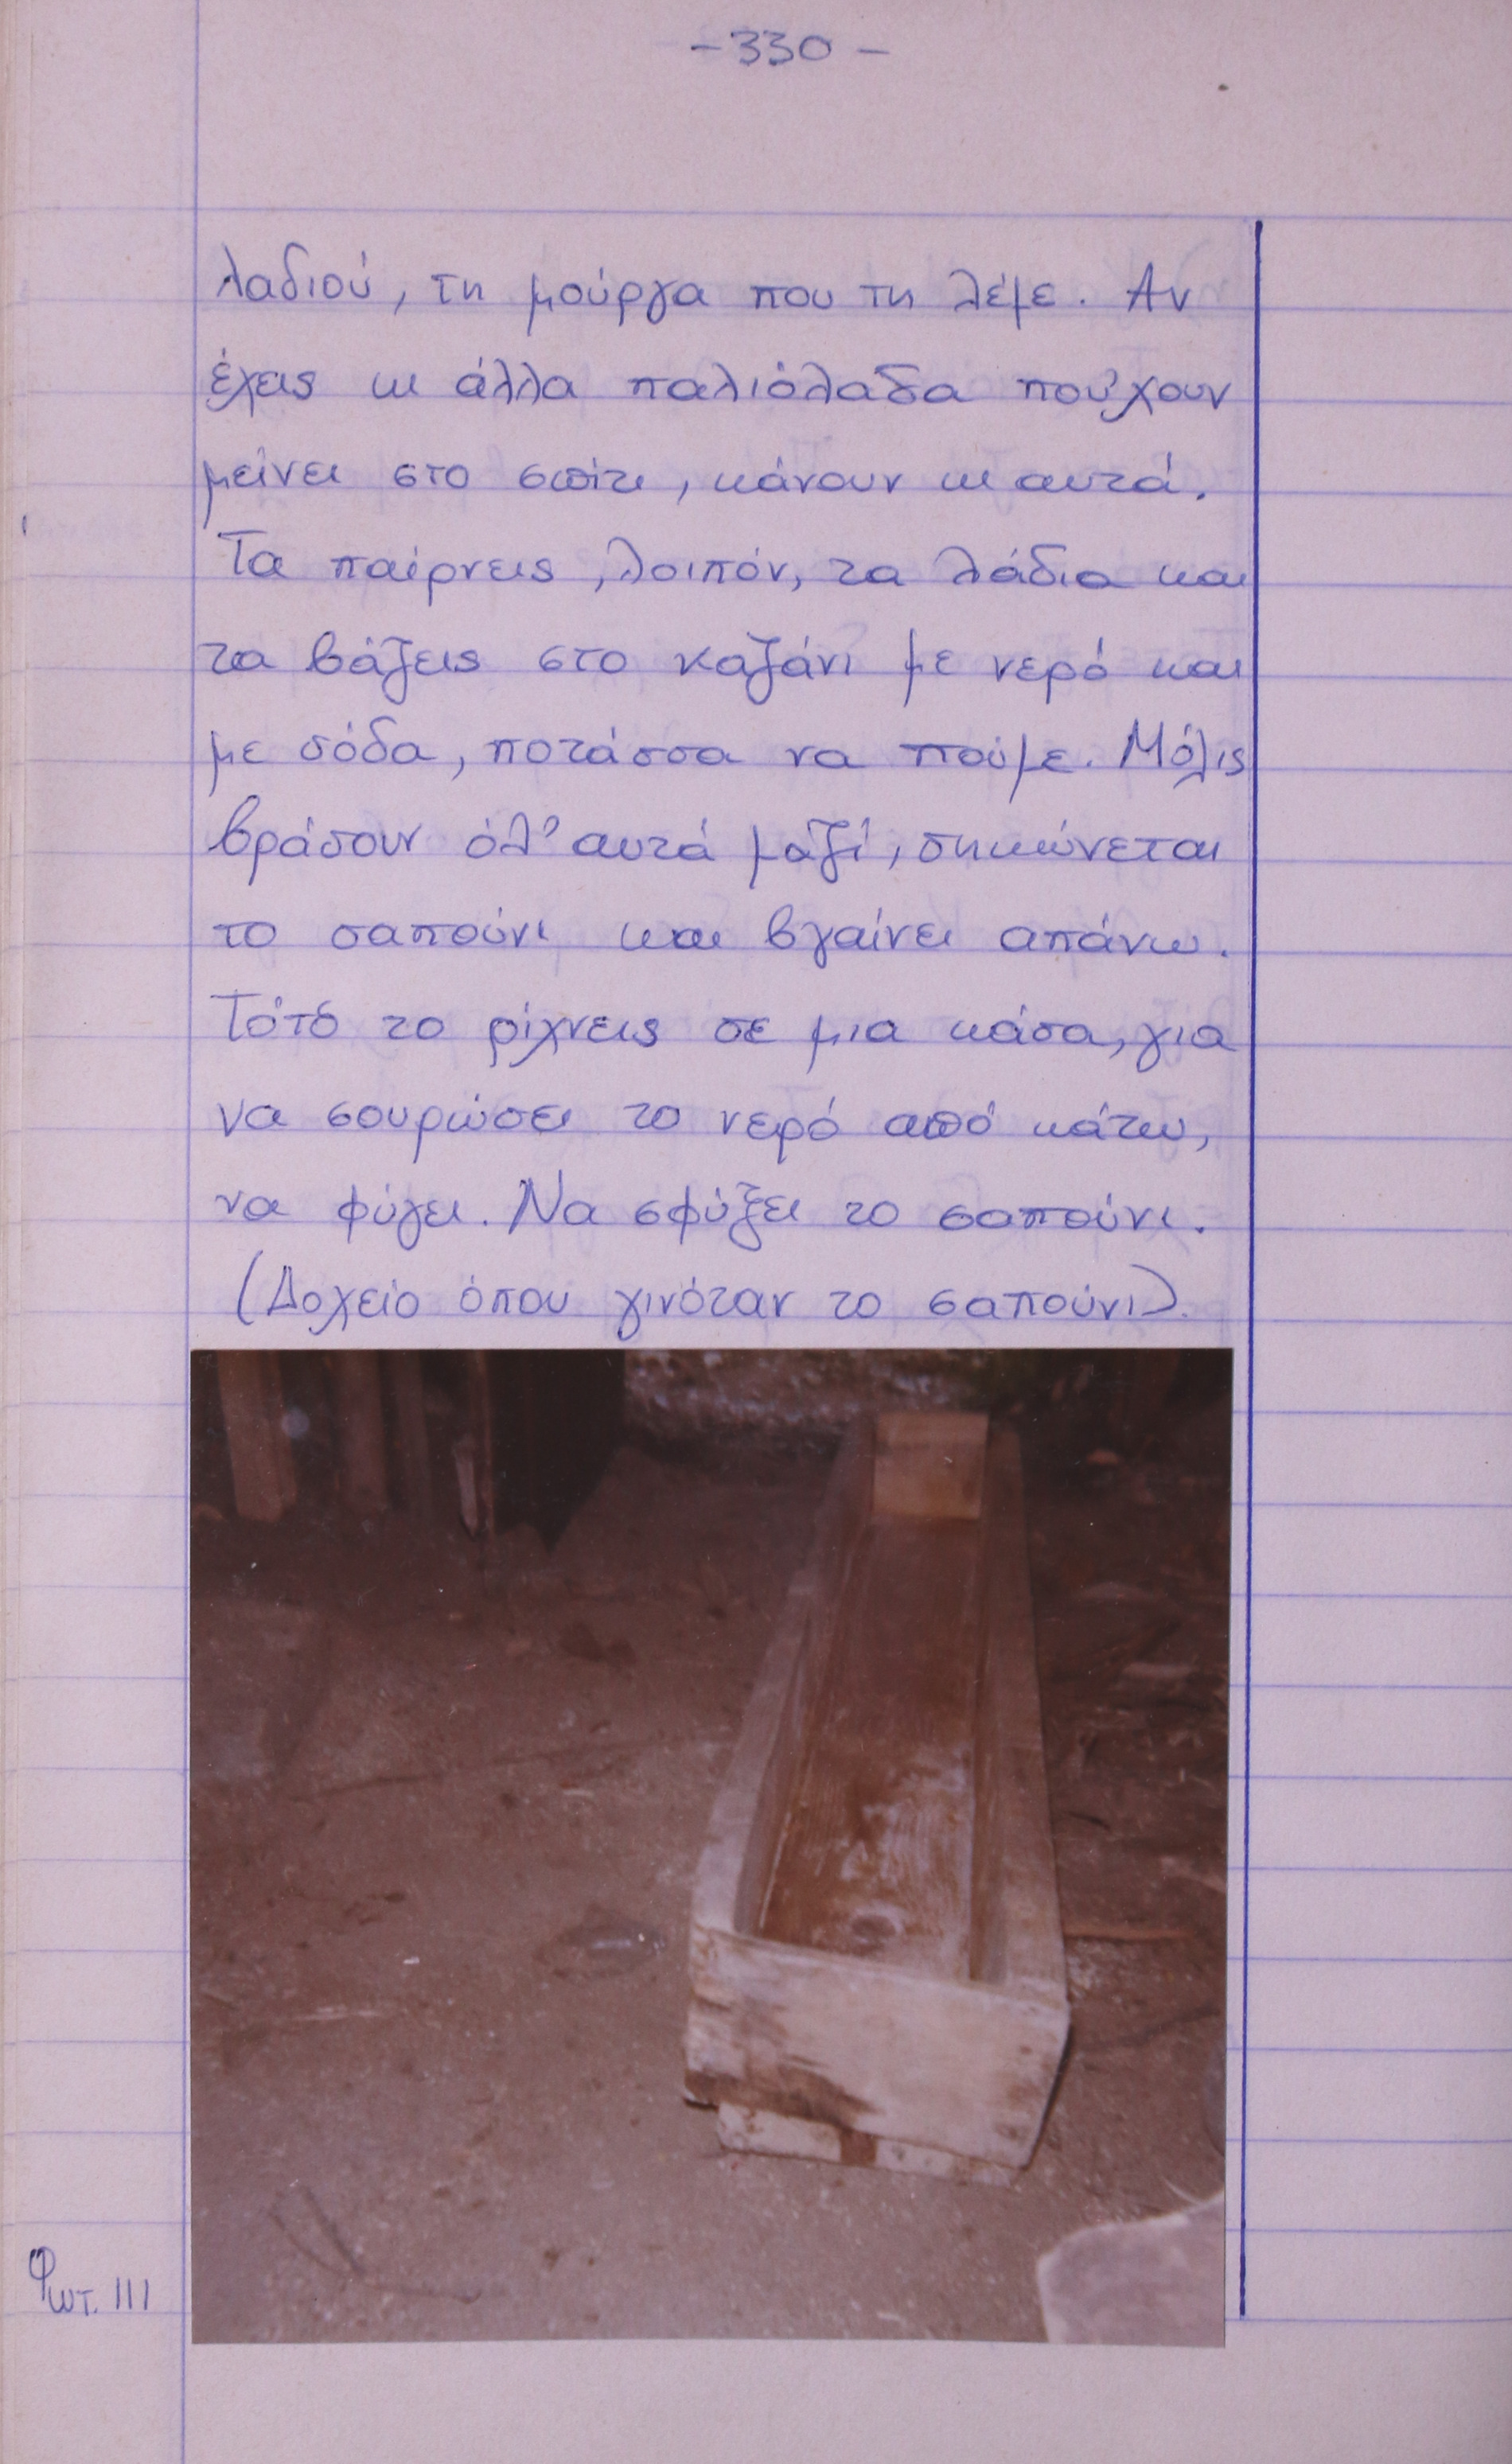 -330-
λαδιού, τη μούργα που τη λέμε. Αν
έχεις κι άλλα παλιόλαδα πού'χουν
μείνει στο σπίτι, κάνουν κι αυτά.
Τα παίρνεις, λοιπόν, τα λάδια και
τα βάζεις στο καζάνι με νερό και
με σόδα, ποτάσσα να πούμε. Μόλις
βράσουν όλ' αυτά μαζί, σηκώνεται
το σαπούνι και βγαίνει απάνω.
Τότε το ρίχνεις σε μια κάσα, για
να σουρώσει το νερό από κάτω,
να φύγει. Να σφύξει το σαπούνι.
(Δοχείο όπου γινόταν το σαπούνι).
Φωτ. 111